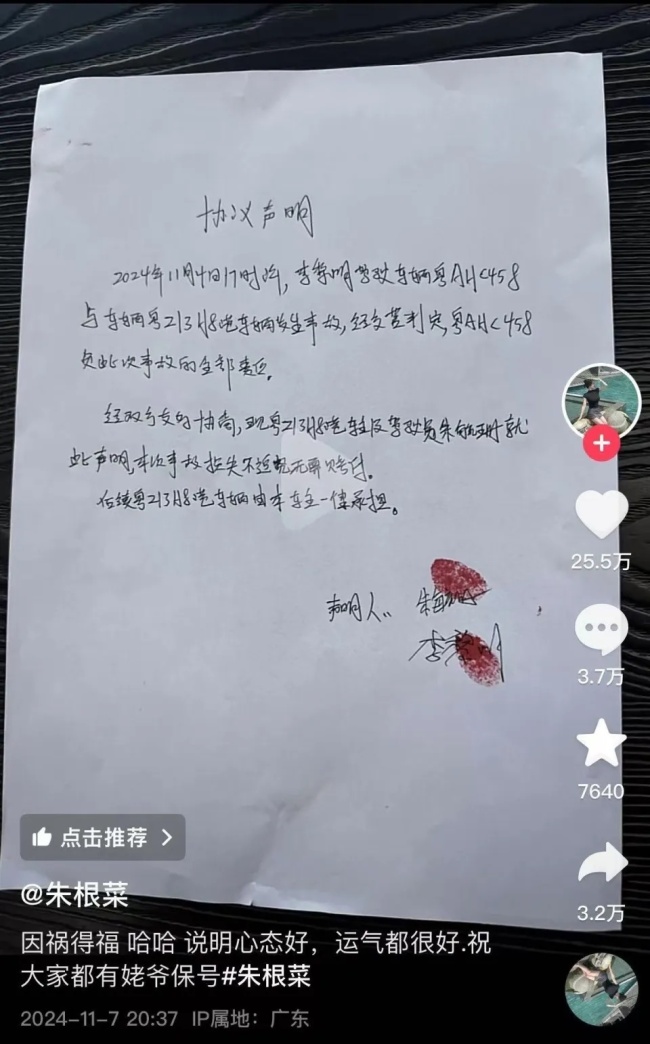 协议声明
2024年11月4日17时许,李崇明驾驶车辆粤AH<458
与车辆粤Z13H8港车辆发生事故,经交警判定,粤AH<458
负此次事故的全部责任。
经双方友好协商,现粤Z13H8港车主及驾驶员就
此声明,本次事故损失不追究无需赔付。
后续粤Z13H8港车辆由本车主一律承担。
声明人:
李 明
25.5万
3.7万
7640
3.2万
点击推荐 >
@朱根菜
因祸得福 哈哈 说明心态好,运气都很好.祝
大家都有姥爷保号#朱根菜
2024-11-7 20:37 IP属地:广东